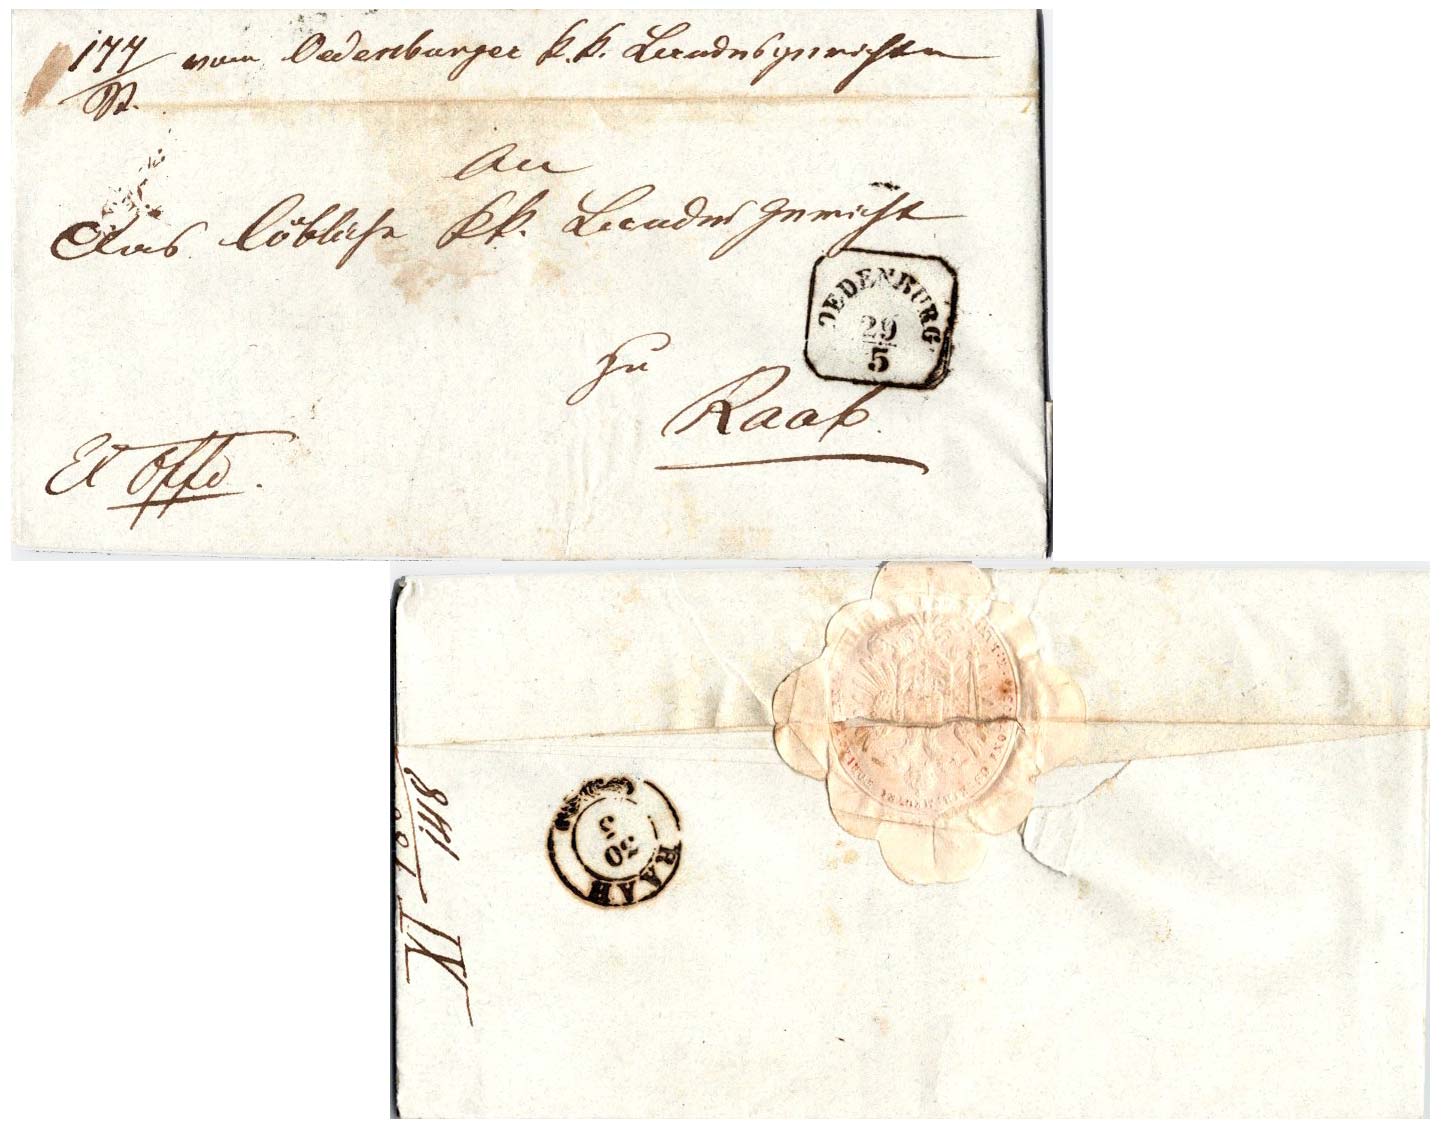 177 vom Oedenburger k.k. Landesgerichte
An
Das löbliche k.k. Landes Gericht
OEDENBURG
29
5
zu
Raab.
Ex Offo.
RAAB
30
5
XI
148